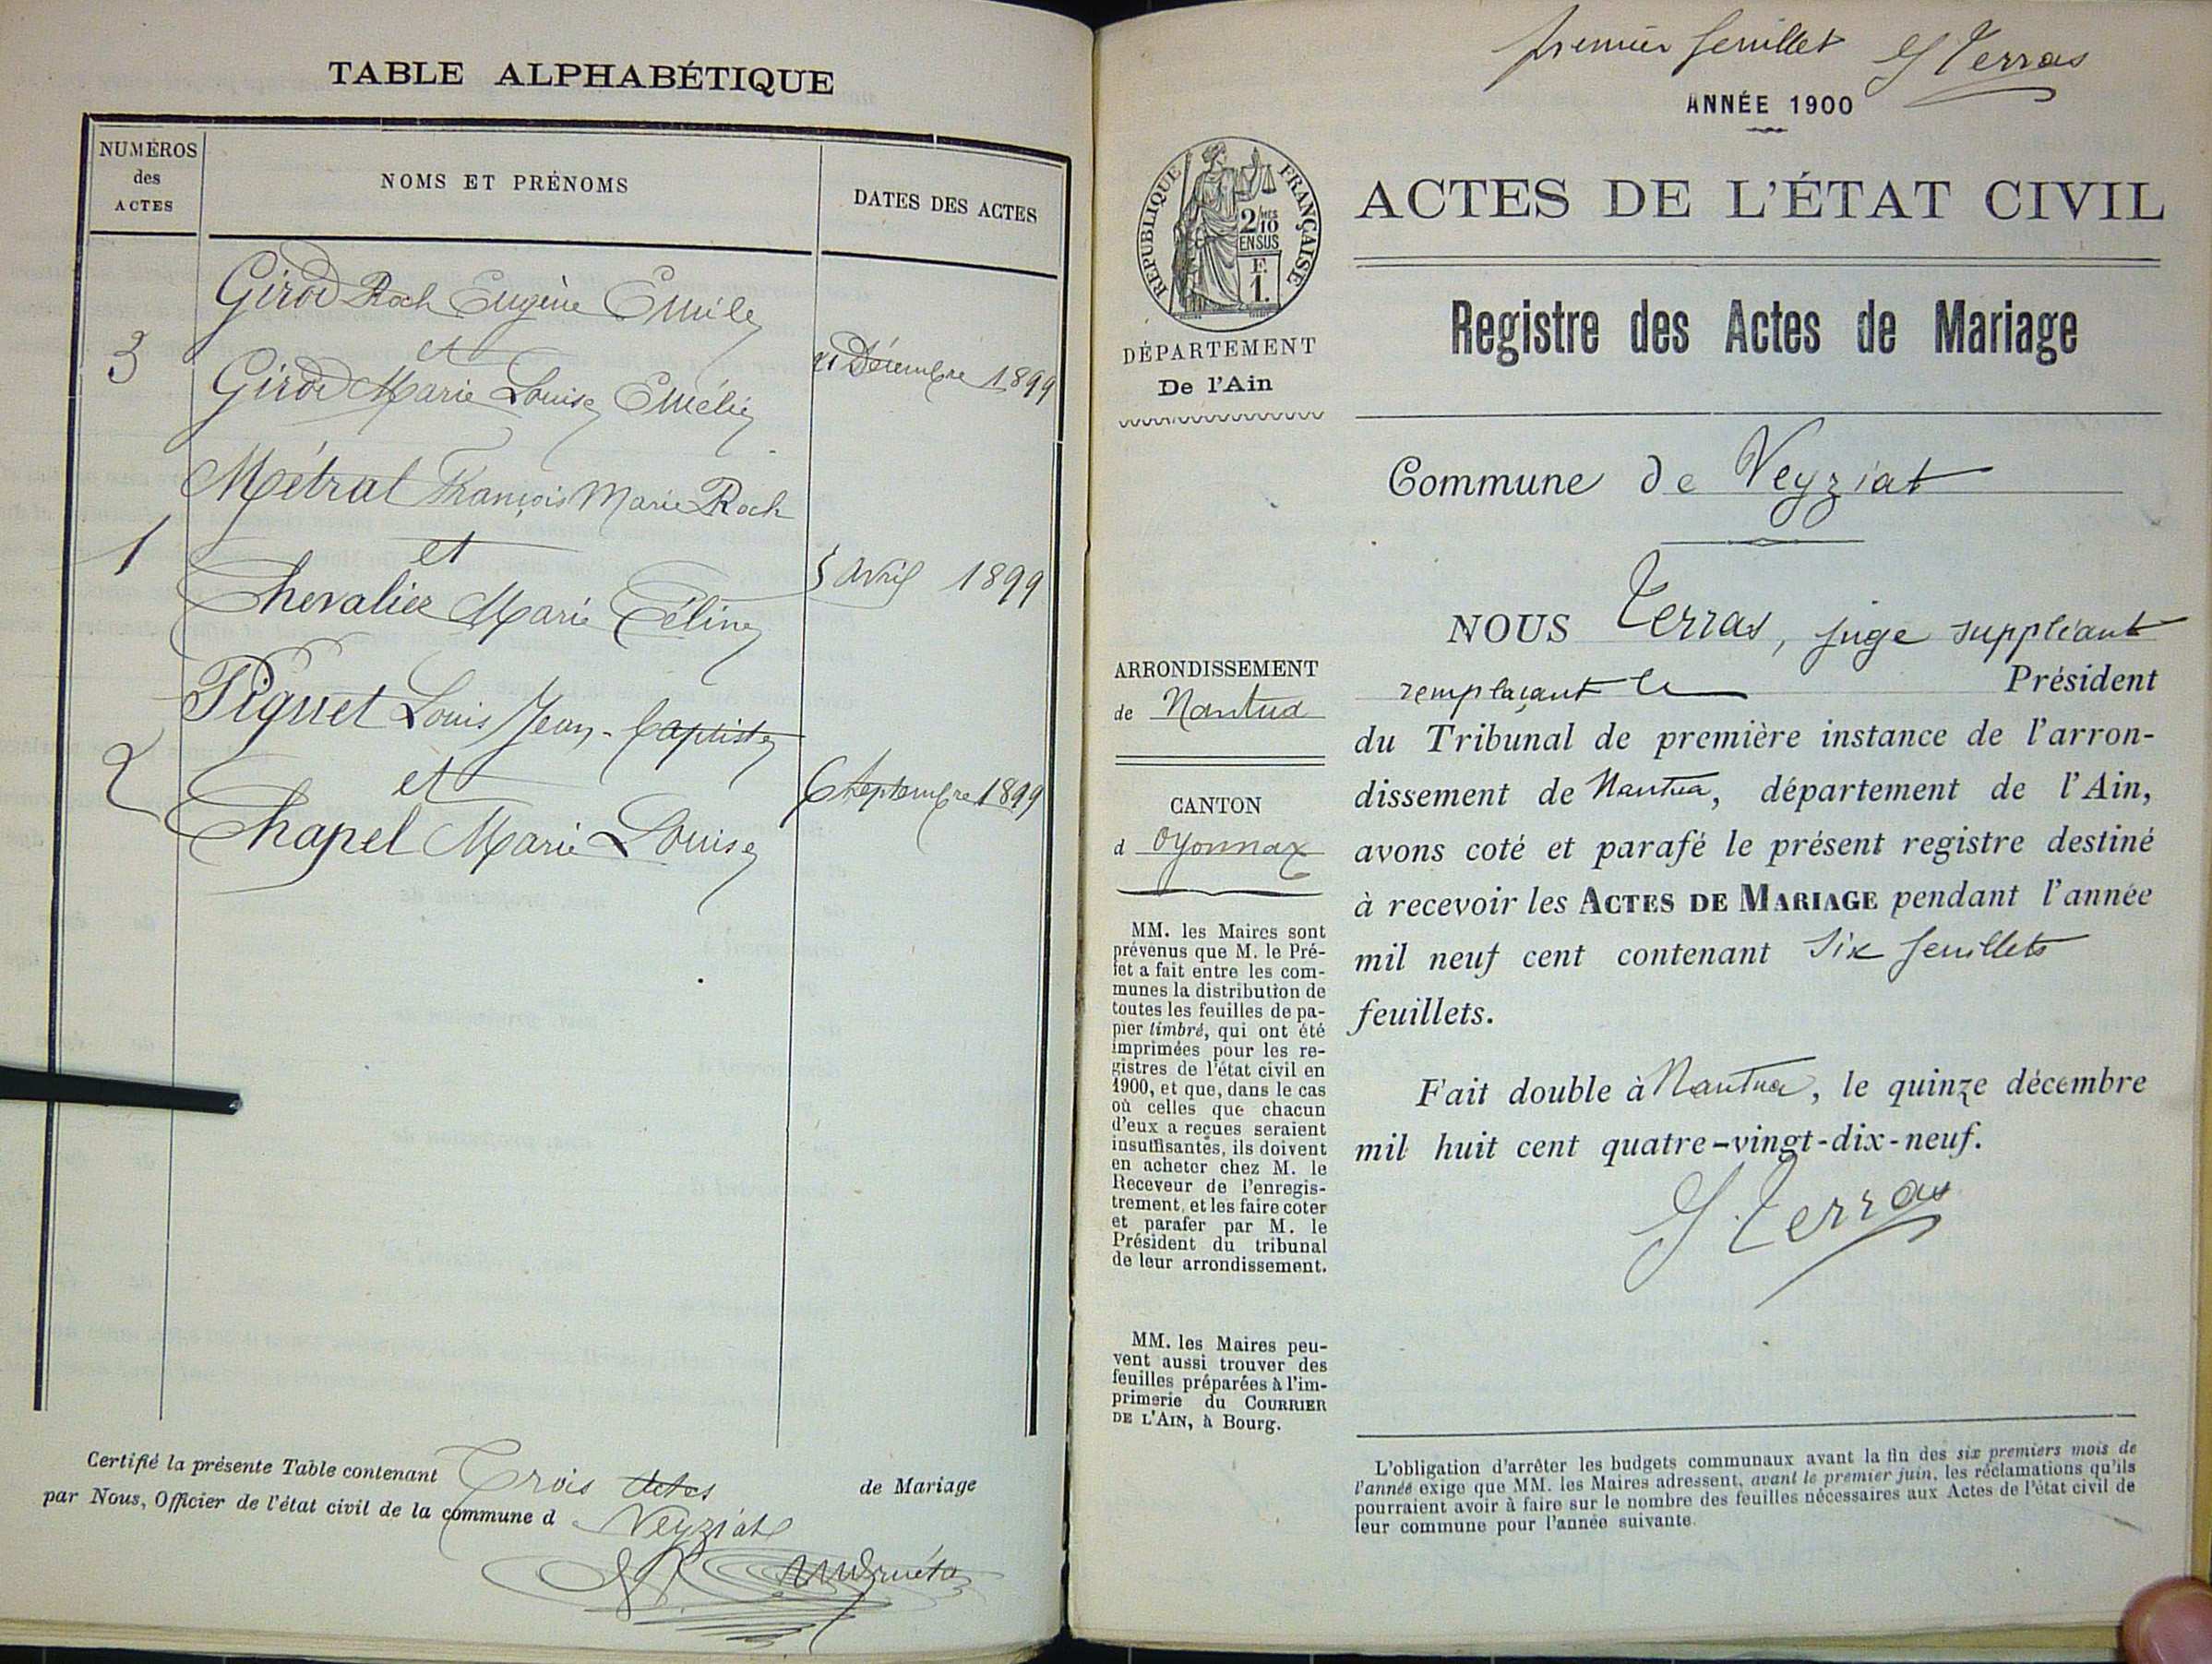 TABLE ALPHABÉTIQUE
NUMÉROS
des
ACTES
NOMS ET PRÉNOMS
DATES DES ACTES
Girod Roch Eugène Emile
et
3
21 Décembre 1899
Girod Marie Louise Emélie
Métral François Marie Roch
et
1
5 avril 1899
Chevalier Marie Céline
Piquet Louis Jean-baptiste
et
2
6 Septembre 1899
Chapel Marie Louise
Certifié la présente Table contenant Trois Actes de Mariage
par Nous, Officier de l'état civil de la commune de Veyziat
premier feuillet G Terras
ANNÉE 1900
RÉPUBLIQUE FRANÇAISE
2/10
EN SUS
F.
1.
DÉPARTEMENT
De l'Ain
ARRONDISSEMENT
de Nantua
CANTON
d Oyonnax
MM. les Maires sont
prévenus que M. le Pré-
fet a fait entre les com-
munes la distribution de
toutes les feuilles de pa-
pier timbré, qui ont été
imprimées pour les re-
gistres de l'état civil en
1900, et que, dans le cas
où celles que chacun
d'eux a reçues seraient
insuffisantes, ils doivent
en acheter chez M. le
Receveur de l'enregis-
trement, et les faire coter
et parafer par M. le
Président du tribunal
de leur arrondissement.
MM. les Maires peu-
vent aussi trouver des
feuilles préparées à l'im-
primerie du COURRIER
DE L'AIN, à Bourg.
ACTES DE L'ÉTAT CIVIL
Registre des Actes de Mariage
Commune de Veyziat
NOUS Terras, juge suppléant
remplaçant le Président
du Tribunal de première instance de l'arron-
dissement de Nantua, département de l'Ain,
avons coté et parafé le présent registre destiné
à recevoir les ACTES DE MARIAGE pendant l'année
mil neuf cent contenant six feuillets
feuillets.
Fait double à Nantua, le quinze décembre
mil huit cent quatre-vingt-dix-neuf.
G. Terras
L'obligation d'arrêter les budgets communaux avant la fin des six premiers mois de
l'année exige que MM. les Maires adressent, avant le premier juin, les réclamations qu'ils
pourraient avoir à faire sur le nombre des feuilles nécessaires aux Actes de l'état civil de
leur commune pour l'année suivante.